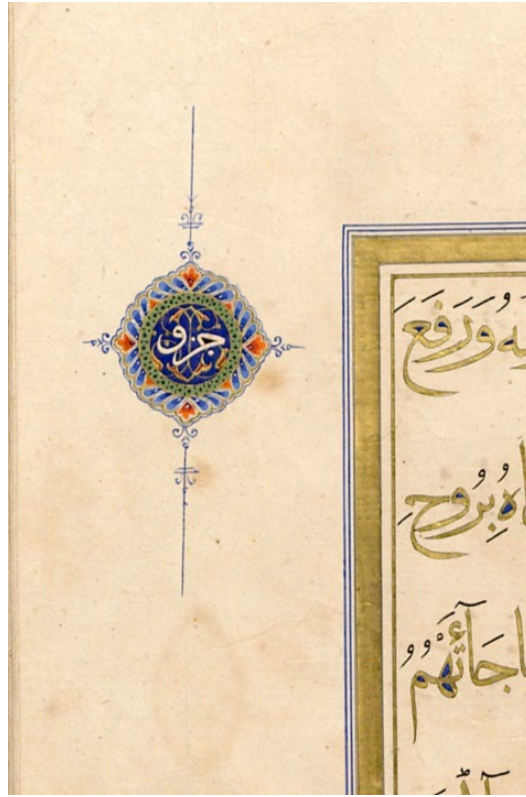 جزو
وَرَفَعَ
بِرُوحِ
جَآئَتْهُمُ